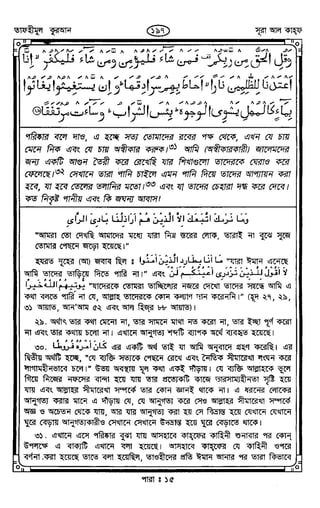 তাফহীমুল কুরআন
১৯৭
সূরা আল কাহফ
وَقُلِ الْحَقُّ مِنْ رَبِّكُمْ فَمَنْ شَاءَ فَلْيُؤْمِنْ وَمَنْ شَاءَ فَلْيَكْفُرْ إِنَّا
أَعْتَدْنَا لِلظّٰلِمِينَ نَارًا أَحَاطَ بِهِمْ سُرَادِقُهَا وَإِنْ يَسْتَغِيثُوا يُغَاثُوا
بِمَاءٍ كَالْمُهْلِ يَشْوِى الْوُجُوهَ بِئْسَ الشَّرَابُ وَسَاءَتْ مُرْتَفَقًا
পরিষ্কার বলে দাও, এ হচ্ছে সত্য তোমাদের রবের পক্ষ থেকে, এখন যে চায়
মেনে নিক এবং যে চায় অস্বীকার করুক।(৩১) আমি (অস্বীকারকারী) জালেমদের
জন্য একটি আগুন তৈরী করে রেখেছি যার শিখাগুলো তাদেরকে ঘেরাও করে
ফেলেছে।(৩২) সেখানে তারা পানি চাইলে এমন পানি দিয়ে তাদের আপ্যায়ন করা
হবে, যা হবে তেলের তলানির মতো।(৩৩) এবং যা তাদের চেহারা দগ্ধ করে দেবে।
কত নিকৃষ্ট পানীয় এবং কি জঘন্য আবাস!
وَمَا نَرٰىكَ اتَّبَعَكَ اِلَّا الَّذِيْنَ هُمْ اَرَاذِلُنَا بَادِىَ الرَّاْىِ
"আমরা তো দেখছি আমাদের মধ্যে যারা নিম্ন স্তরের লোক, তারাই না বুঝে সুঝে
তোমার পেছনে জড়ো হয়েছে।"
হযরত নূহের (আ) জবাব ছিল : مَا اَنَا بِطَارِدِ الَّذِيْنَ اٰمَنُوْا "যারা ঈমান এনেছে
আমি তাদের তাড়িয়ে দিতে পারি না।" এবং
لَا اَقُوْلُ لِلَّذِيْنَ تَزْدَرِىْ اَعْيُنُكُمْ لَنْ يُّؤْتِيَهُمُ اللّٰهُ خَيْرًا "যাদেরকে তোমরা তাচ্ছিল্যের নজরে দেখো তাদের সম্বন্ধে আমি এ
কথা বলতে পারি না যে, আল্লাহ তাদেরকে কোন কল্যাণ দান করেননি।" (হূদ ২৭, ২৯,
৩১ আয়াত, আন'আম ৫২ এবং আল হিজ্‌র ৮৮ আয়াত)।
২৯. অর্থাৎ তার কথা মেনো না, তার সামনে মাথা নত করো না, তার ইচ্ছা পূর্ণ করো
না এবং তার কথায় চলো না। এখানে আনুগত্য শব্দটি ব্যাপক অর্থে ব্যবহৃত হয়েছে।
৩০. كَانَ اَمْرُهٗ فُرُطًا এর একটি অর্থ তাই যা আমি অনুবাদে গ্রহণ করেছি। এর
দ্বিতীয় অর্থটি হচ্ছে, "যে ব্যক্তি সত্যকে পেছনে রেখে এবং নৈতিক সীমারেখা লংঘন করে
লাগামহীনভাবে চলে।" উভয় অবস্থায় মূল কথা একই দাঁড়ায়। যে ব্যক্তি আল্লাহকে ভুলে
গিয়ে নিজের নফসের বান্দা হয়ে যায় তার প্রত্যেকটি কাজে ভারসাম্যহীনতা সৃষ্টি হয়ে
যায় এবং আল্লাহর সীমারেখা সম্পর্কে তার কোন জ্ঞানই থাকে না। এ ধরনের লোকের
আনুগত্য করার মানে এ দাঁড়ায় যে, যে আনুগত্য করে সেও আল্লাহর সীমারেখা সম্পর্কে
অজ্ঞ ও অচেতন থেকে যায়, আর যার আনুগত্য করা হয় সে বিভ্রান্ত হয়ে যেখানে যেখানে
ঘুরে বেড়ায় আনুগত্যকারীও সেখানে সেখানে উদভ্রান্ত হয়ে ঘুরে বেড়াতে থাকে।
৩১. এখানে এসে পরিষ্কার বুঝা যায় আসহাবে কাহফের কাহিনী শুনাবার পর কোন্
উপলক্ষে এ বাক্যটি এখানে বলা হয়েছে। আসহাবে কাহফের যে কাহিনী ওপরে
বর্ণনা করা হয়েছে তাতে বলা হয়েছিল, তাওহীদের প্রতি ঈমান আনার পর তারা কিভাবে
পারা : ১৫